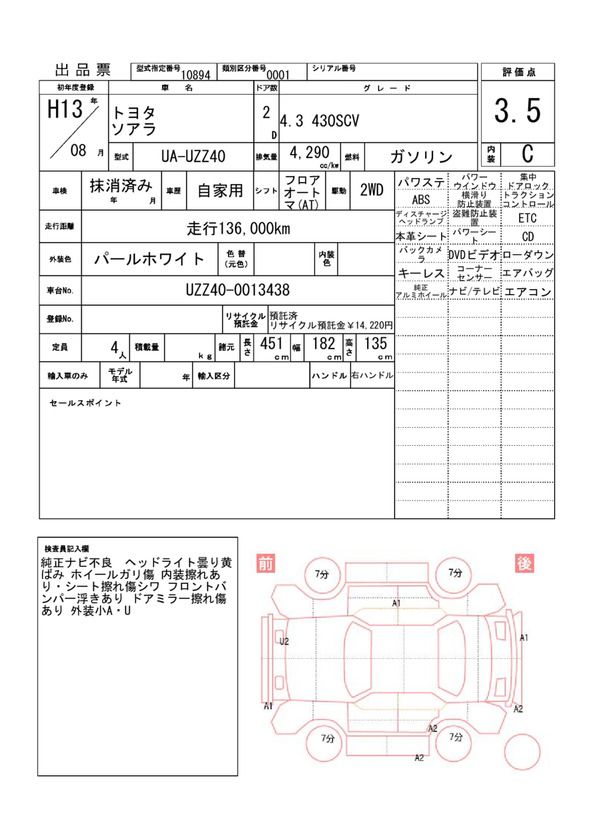 出品票 型式指定番号 10894 類別区分番号 0001 シリアル番号
評価点
初年度登録 車名 ドア数 グレード
H13年 トヨタ 2 4.3 430SCV 3.5
ソアラ D
08月 型式 UA-UZZ40 排気量 4,290 cc/kw 燃料 ガソリン 内装 C
車検 抹消済み 年 月 車歴 自家用 シフト フロアオートマ(AT) 駆動 2WD
パワステ パワーウインドウ 集中ドアロック
ABS 横滑り防止装置 トラクションコントロール
走行距離 走行136,000km
ディスチャージヘッドランプ 盗難防止装置 ETC
本革シート パワーシート CD
外装色 パールホワイト 色替(元色) 内装色
バックカメラ DVDビデオ ローダウン
キーレス コーナーセンサー エアバッグ
車台No. UZZ40-0013438
純正アルミホイール ナビ/テレビ エアコン
登録No. リサイクル預託金 預託済
リサイクル預託金¥14,220円
定員 4人 積載量 kg 諸元 長さ 451cm 幅 182cm 高さ 135cm
輸入車のみ モデル年式 年 輸入区分 ハンドル 右ハンドル
セールスポイント
検査員記入欄
純正ナビ不良 ヘッドライト曇り黄
ばみ ホイールガリ傷 内装擦れあ
り・シート擦れ傷シワ フロントバ
ンパー浮きあり ドアミラー擦れ傷
あり 外装小A・U
前 後
7分 7分
A1
U2 A1
A1 A2
7分 A2 7分
A2